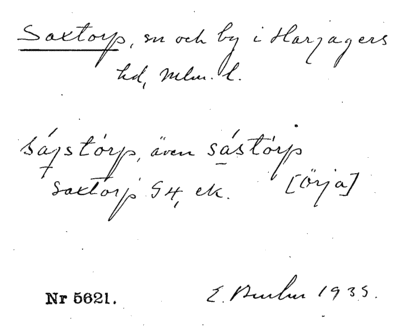 Saxtorp, sn och by i Harjagers
hd, Mlm. l.
sásstórp, även sástórp
Saxtorp G4, ek. [Örja]
Nr 5621. E. 1935.